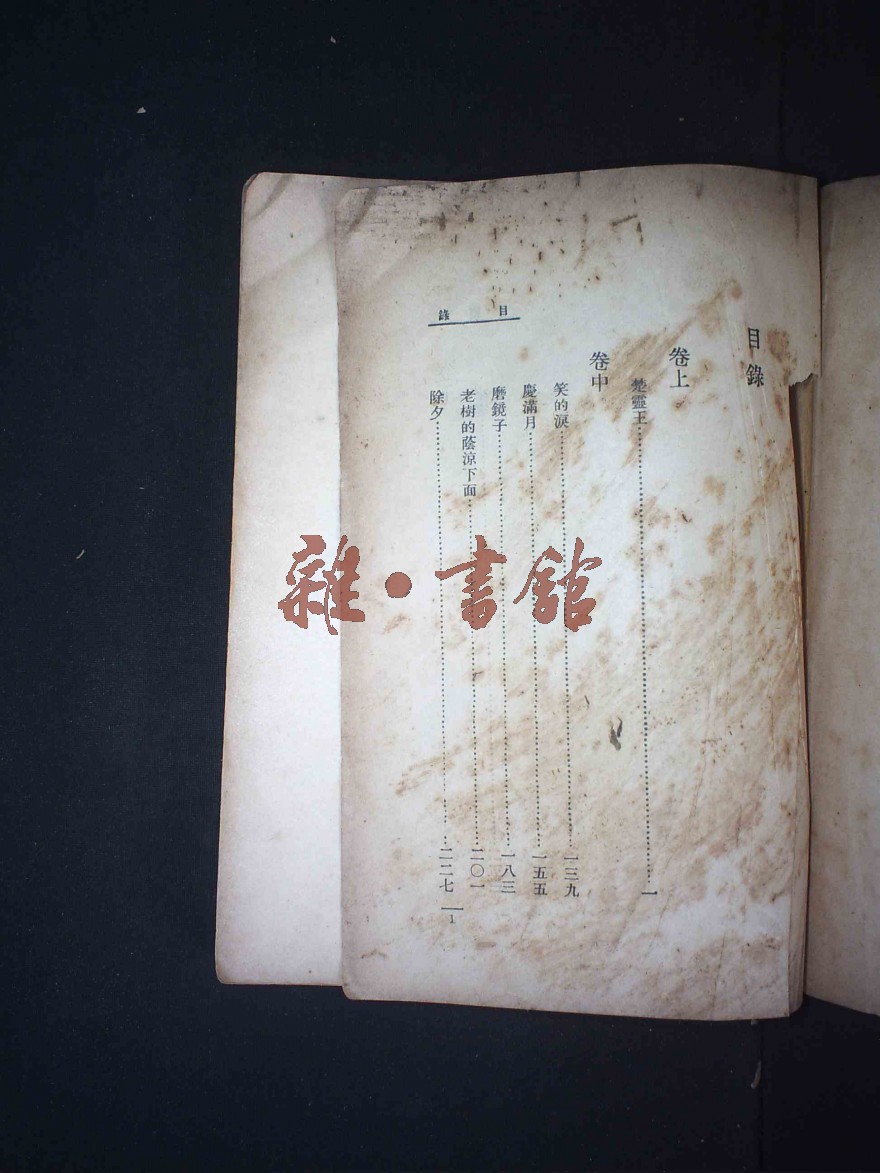 目錄
卷上
楚靈王……一
卷中
笑的淚……一三九
慶滿月……一五五
磨鏡子……一八三
老樹的蔭涼下面……二〇一
除夕……二二七
目錄
1
雜·書館